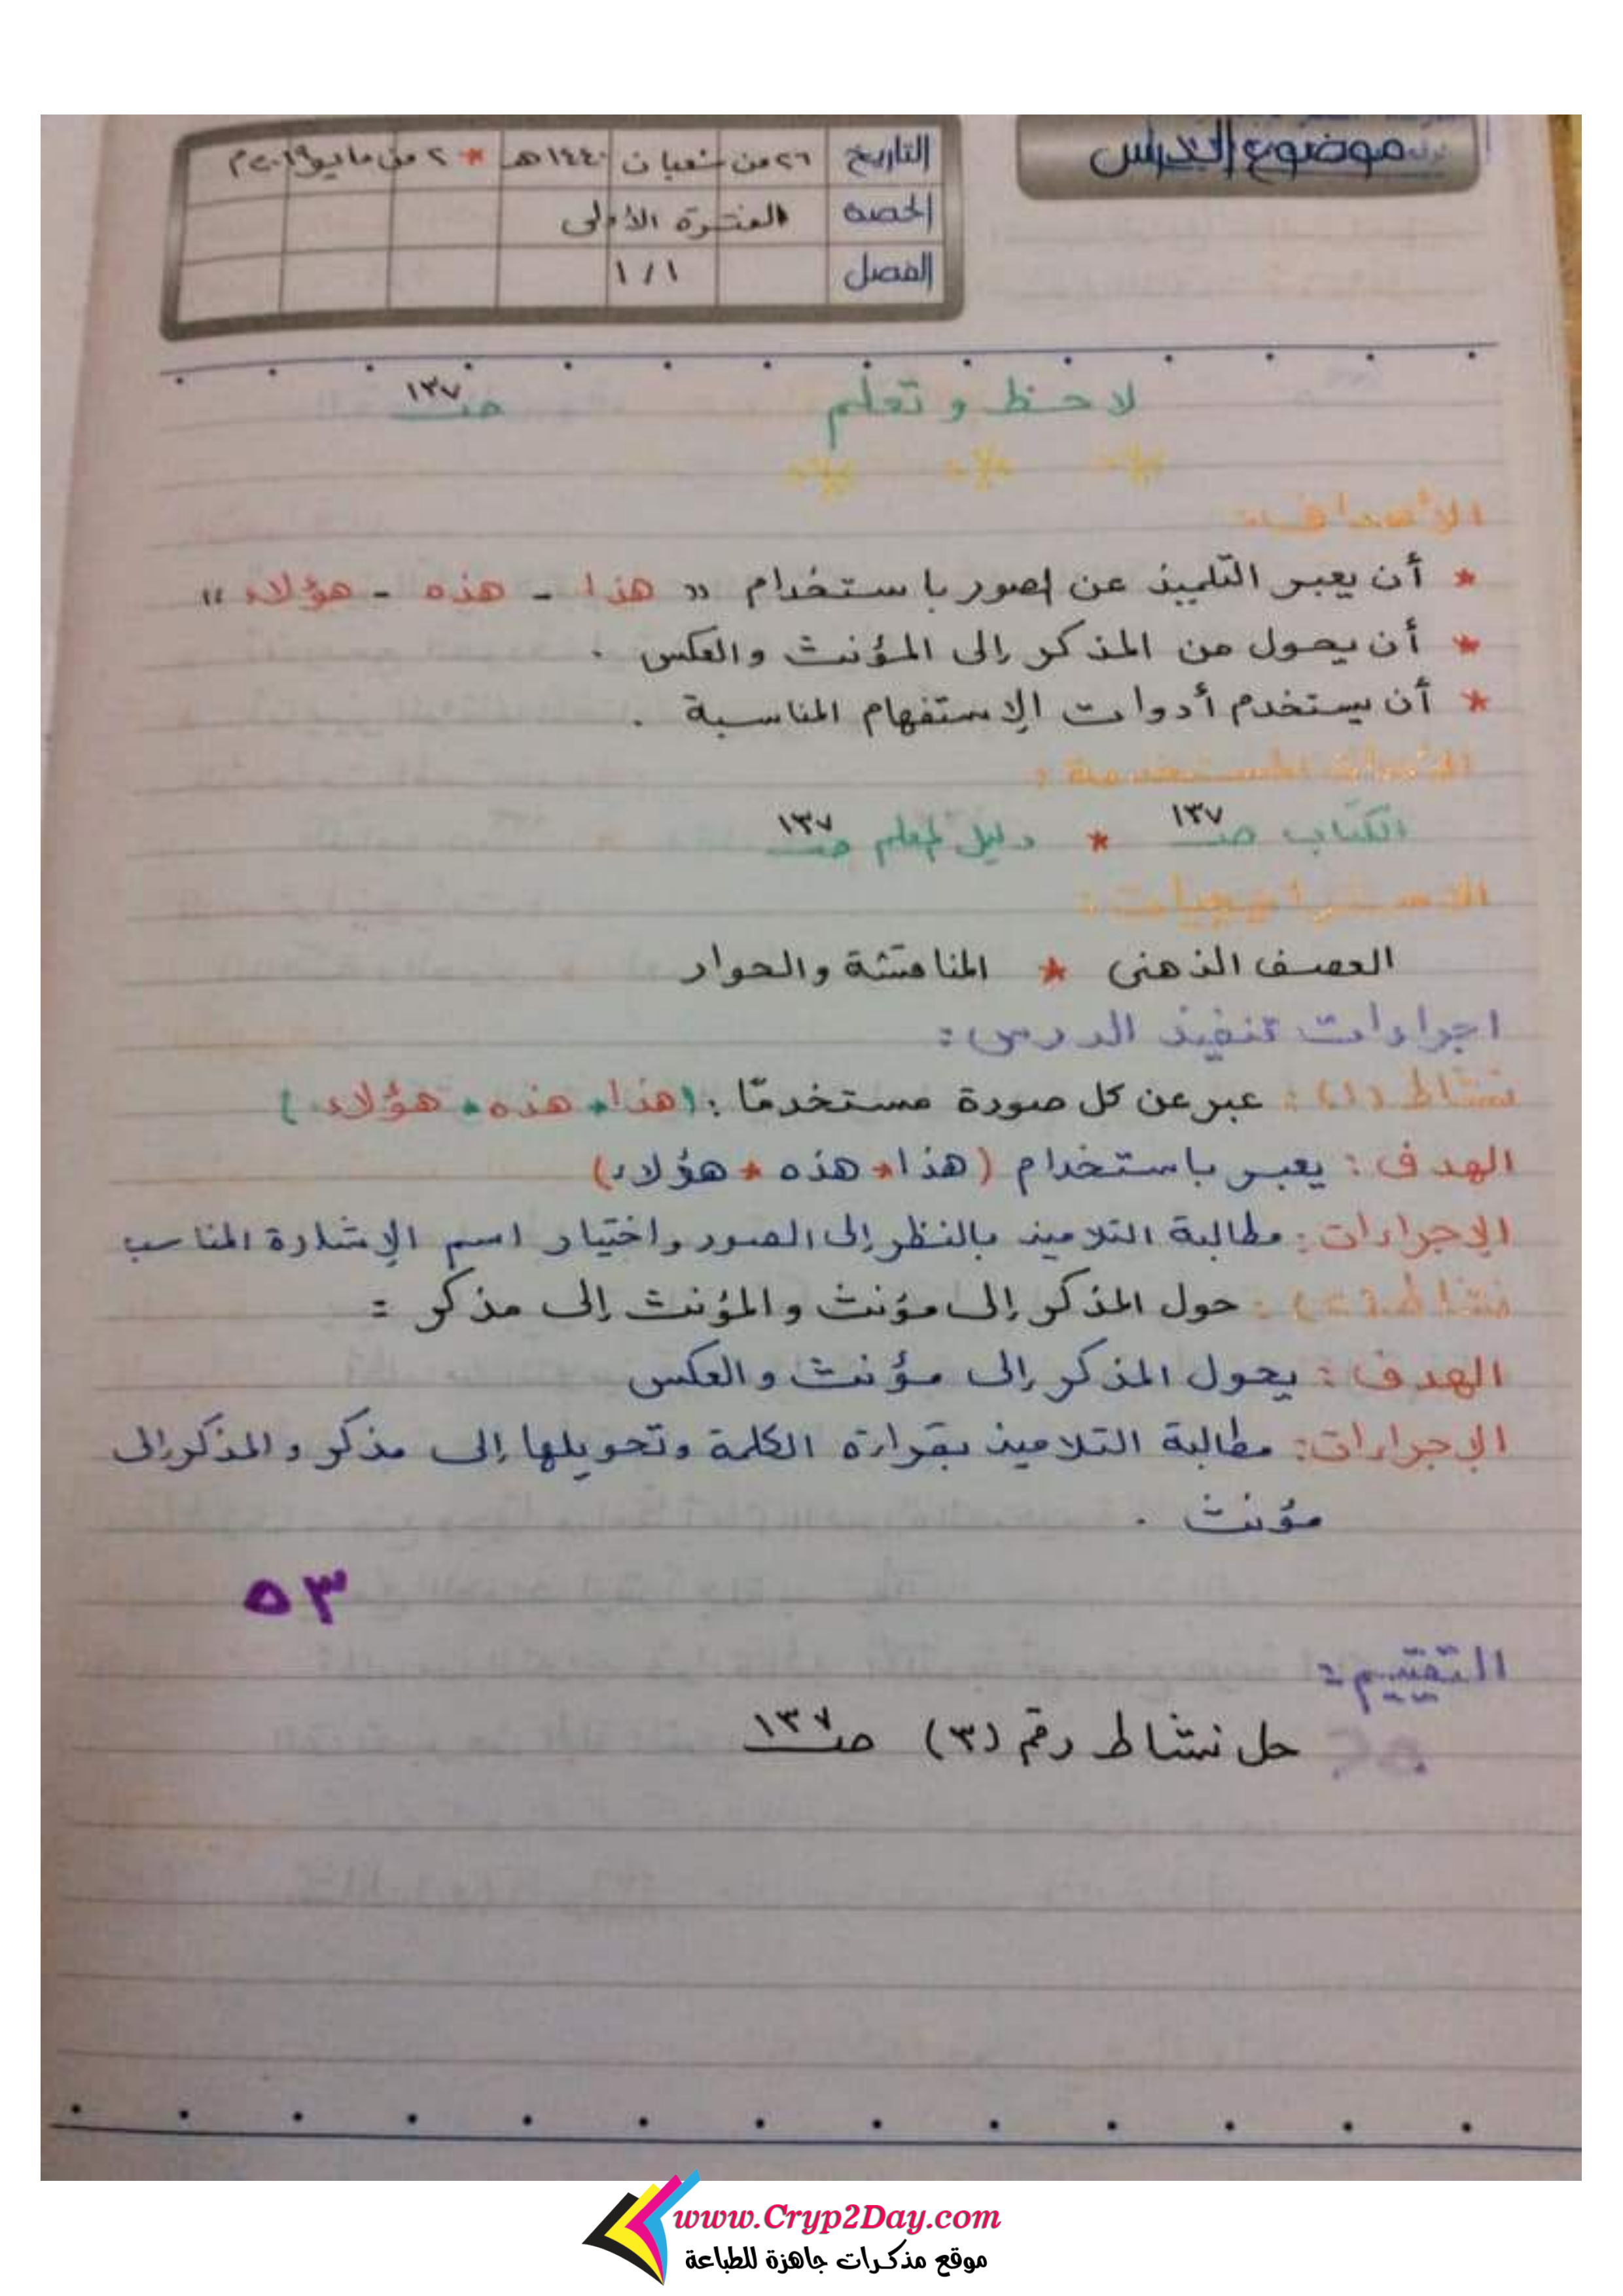 موضوع الدرس
التاريخ ٢٦ من شعبان ١٤٤٠هـ * ٢ من مايو ٢٠١٩م
الحصة الفترة الأولى
الفصل ١ / ١
لاحظ و تعلم صـ ١٣٧
الأهداف:
* أن يعبر التلميذ عن الصور باستخدام " هذا - هذه - هؤلاء "
* أن يحول من المذكر إلى المؤنث والعكس .
* أن يستخدم أدوات الإستفهام المناسبة .
الأدوات المستخدمة :
الكتاب صـ ١٣٧ * دليل المعلم صـ ١٣٧
الاستراتيجيات :
العصف الذهنى * المناقشة والحوار
اجراءات تنفيذ الدرس :
نشاط (١) : عبر عن كل صورة مستخدمًا : (هذا * هذه * هؤلاء )
الهدف : يعبر باستخدام (هذا * هذه * هؤلاء)
الإجراءات : مطالبة التلاميذ بالنظر إلى الصور واختيار اسم الإشارة المناسب
نشاط (٢) : حول المذكر إلى مؤنث والمؤنث إلى مذكر :
الهدف : يحول المذكر إلى مؤنث والعكس
الإجراءات : مطالبة التلاميذ بقراءة الكلمة وتحويلها إلى مذكر والمذكر إلى
مؤنث .
٥٣
التقييم :
حل نشاط رقم (٣) صـ ١٣٧
www.Cryp2Day.com
موقع مذكرات جاهزة للطباعة